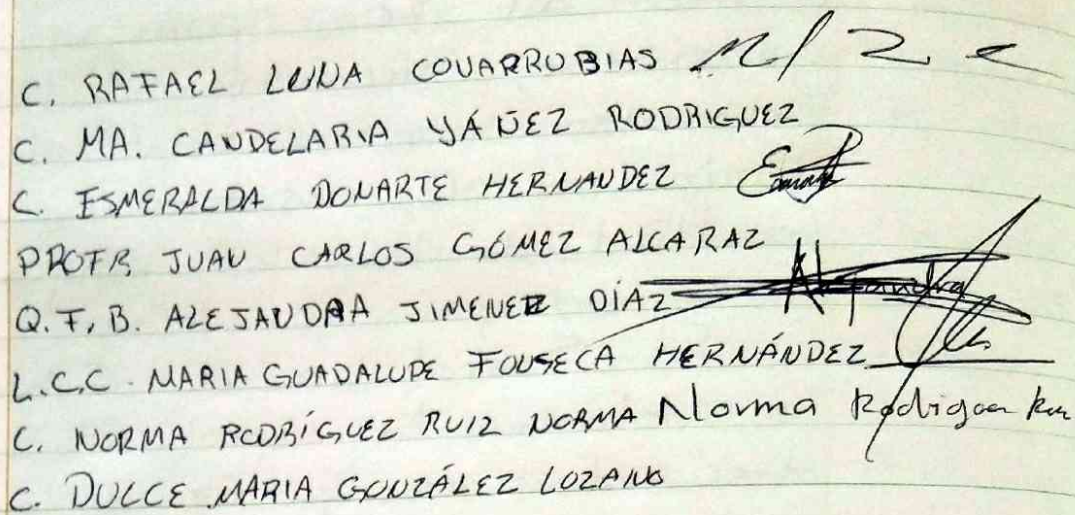 C. RAFAEL LUNA COVARRUBIAS
C. MA. CANDELARIA YÁÑEZ RODRIGUEZ
C. ESMERALDA DONARTE HERNANDEZ
PROFR JUAN CARLOS GÓMEZ ALCARAZ
Q.F.B. ALEJANDRA JIMENEZ DÍAZ Alejandra
L.C.C. MARIA GUADALUPE FONSECA HERNÁNDEZ
C. NORMA RODRÍGUEZ RUIZ NORMA Norma
C. DULCE MARIA GONZÁLEZ LOZANO